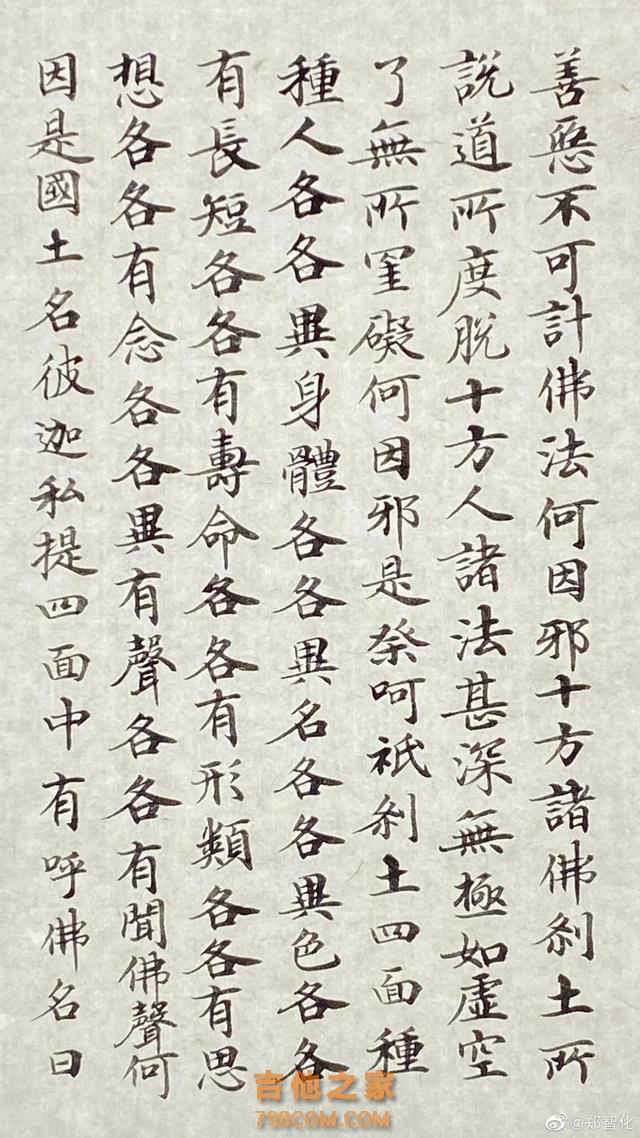 善惡不可計佛法何因邪十方諸佛剎土所
說道所度脫十方人諸法甚深無極如虛空
了無所罣礙何因邪是祭呵祇剎土四面種
種人各各異身體各各異名各各異色各各
有長短各各有壽命各各有形類各各有思
想各各有念各各異有聲各各有聞佛聲何
因是國土名彼迦私提四面中有呼佛名曰
吉他之家
798COM.COM
@郑智化